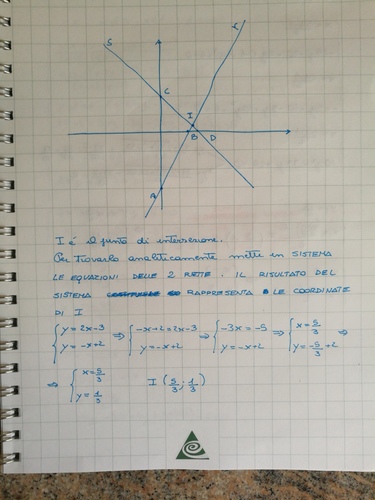 S
r
C
I
B D
A
I é il punto di intersezione.
Per trovarlo analiticamente mette in SISTEMA
LE EQUAZIONI DELLE 2 RETTE. IL RISULTATO DEL
SISTEMA RAPPRESENTA LE COORDINATE
DI I
{y = 2x-3 ⇒ {-x+2=2x-3 ⇒ {-3x = -5 ⇒ {x = 5/3 ⇒
{y = -x+2 {y = -x+2 {y = -x+2 {y = -5/3 + 2
⇒ {x = 5/3 I (5/3; 1/3)
{y = 1/3